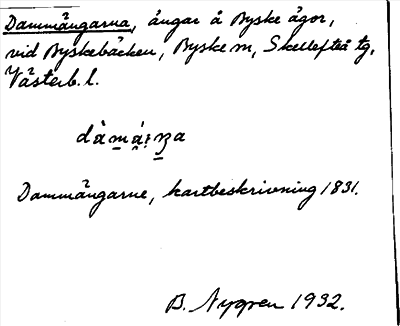 Dammängarna, ängar å Byske ägor,
vid Byskebäcken, Byske m, Skellefteå tg,
Västerb. l.
Dammängarne, kartbeskrivning 1831.
B. Nygren 1932.